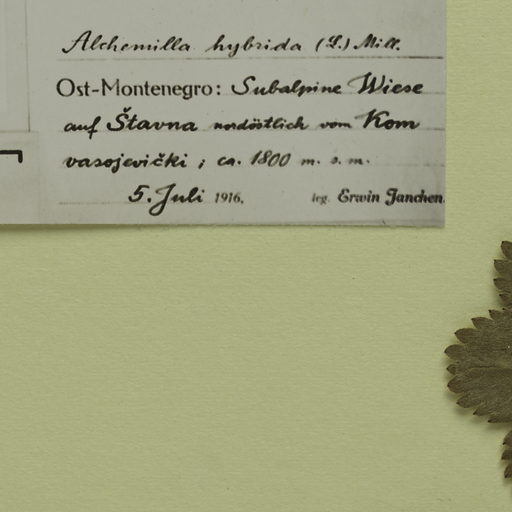 Alchemilla hybrida (L.) Mill.
Ost-Montenegro: Subalpine Wiese
auf Štavna nordöstlich vom Kom
vasojevički; ca. 1800 m. s. m.
5. Juli 1916. leg. Erwin Janchen.